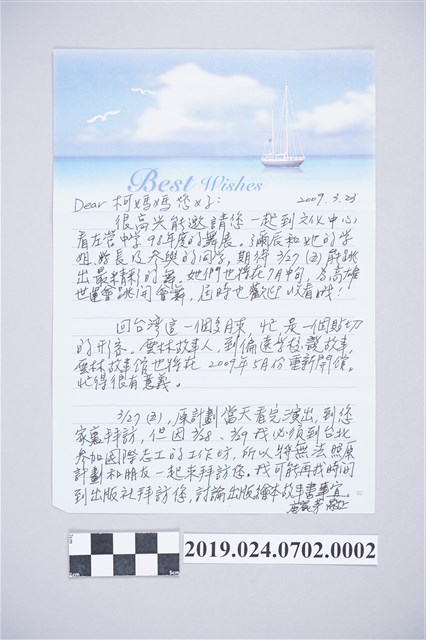 Best Wishes
Dear 柯媽媽您好: 2009.3.23
很高興能邀請您一起到文化中心
看左營中學98年度的舞展。彌辰和她的學
姐、教長及參與的同學,期待 3/27(五)能跳
出最精彩的舞。她們也將在7月中旬,為高雄
世運會跳開會舞,屆時也歡迎收看哦!
回台灣這一個多月來,忙是一個貼切
的形容。雲林故事人,到偏遠學校說故事,
雲林故事館也將在2009年5月份重新開館。
忙得很有意義。
3/27(五),原計劃當天看完演出,到您
家裏拜訪,但因3/28、3/29我必須到台北
參加國際志工的工作坊,所以將無法照原
計劃和朋友一起來拜訪您。我可能再找時間
到出版社拜訪您,討論出版繪本故事書事宜。
2019.024.0702.0002